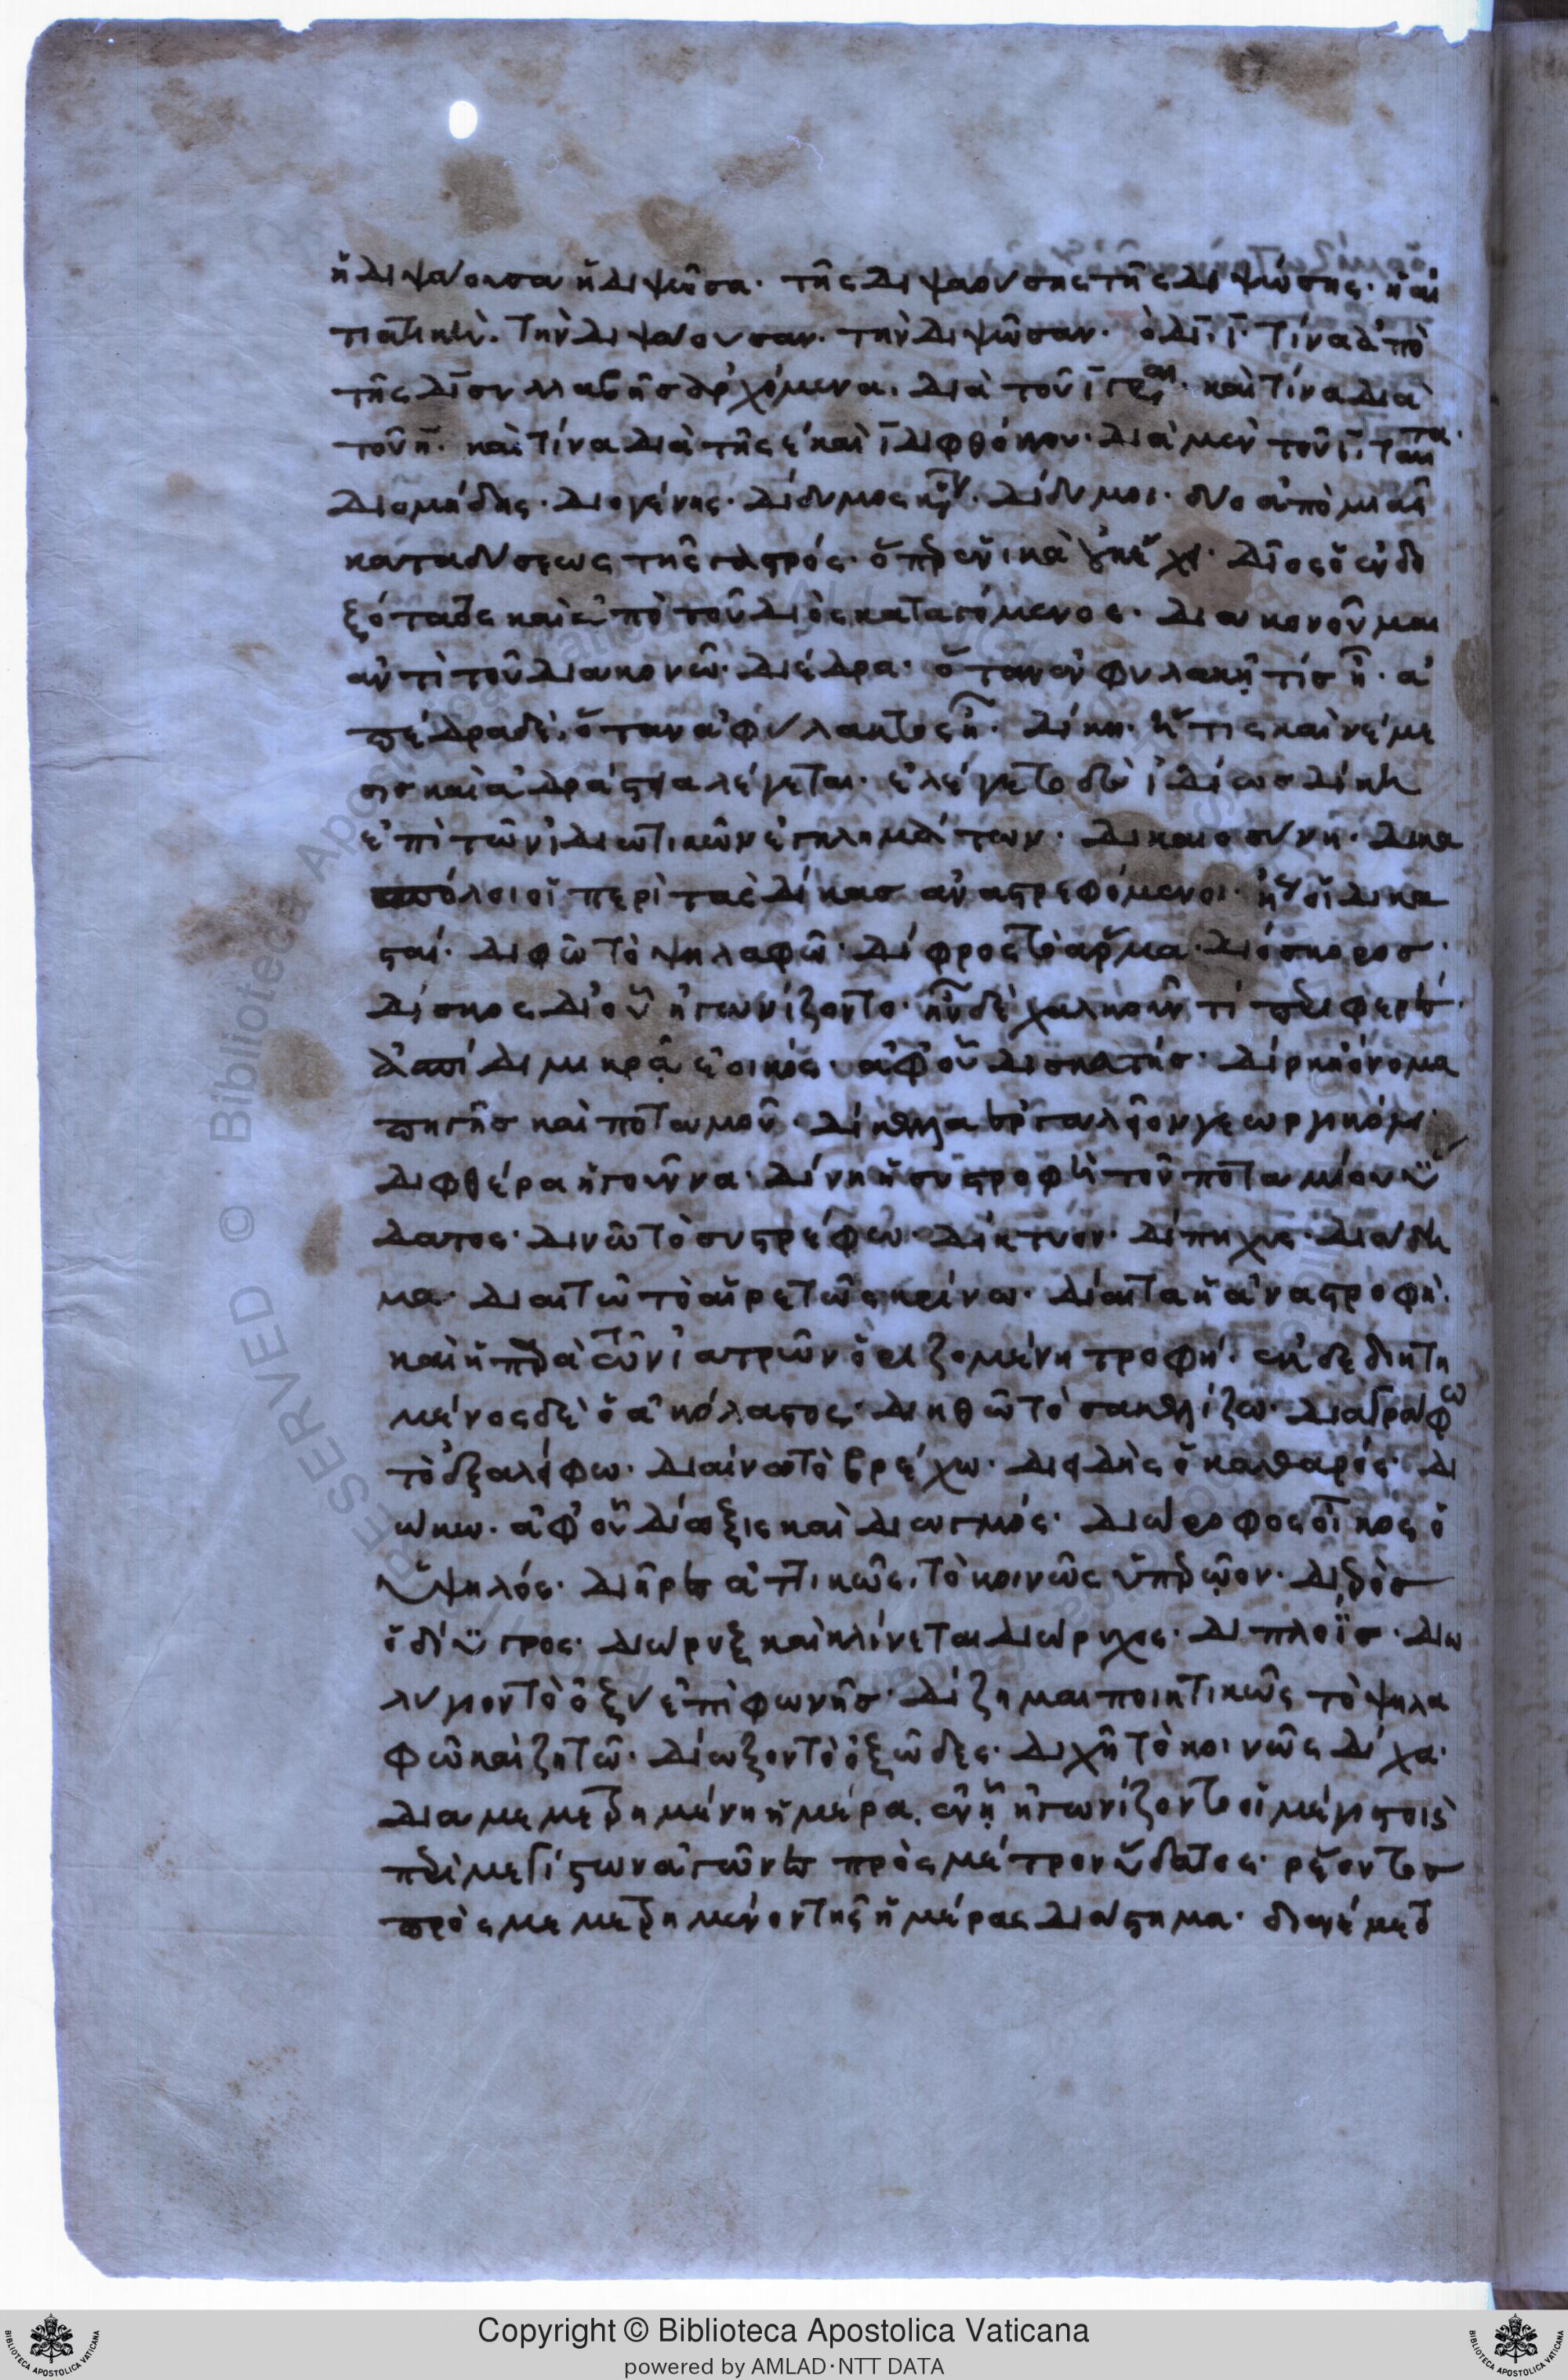 ἡ διψάουσα ἡ διψῶσα· τῆς διψαούσης τῆς διψώσης· ἡ αἰ
τιατικὴ. τὴν διψάουσαν. τὴν διψῶσαν. ὁ δι. ϊ. τίνα ἀπὸ
τῆς δι συλλαβῆς ἀρχόμενα. διὰ τοῦ ϊ γρ αι. καὶ τίνα διὰ
τοῦ η. καὶ τίνα διὰ τῆς ε καὶ ϊ διφθόγγου. διὰ μὲν τοῦ ϊ. ταῦτα.
Διομήδης. Διογένης. Δίδυμος κύριον. Δίδυμοι. δύο ἀπὸ μιᾶς
καταδύσεως τῆς γαστρός. Δῖος ὁ ἐνδο
ξότατος καὶ ἀπὸ τοῦ Διὸς καταγόμενος. Διακονοῦμαι
ἀντὶ τοῦ διακονῶ. Διέδρα. ὅταν ἐν φυλακῇ τίς ᾖ. ἀ
πέδρα δὲ, ὅταν ἀφύλακτος ᾖ. Δίκη. ἥτις καὶ νέμε
σις καὶ ἀδράστεια λέγεται. ἐλέγετο δὲ ἰδίως δίκη
ἐπὶ τῶν ἰδιωτικῶν ἐγκλημάτων. Δικαιοσύνη. Δικα
σπόλοι οἱ περὶ τὰς δίκας ἀναστρεφόμενοι. ἤγουν οἱ δικα
σταί. Διφῶ τὸ ψηλαφῶ. Δίφρος τὸ ἅρμα. Διόσκορος.
Δίσκος δι' οὗ ἠγωνίζοντο. ἦν δὲ χαλκοῦν τί περιφερὲς.
ἀσπίδι μικρᾷ ἐοικός. ἀφ' οὗ δισκευτής. Δίρκη ὄνομα
πηγῆς καὶ ποταμοῦ. Δίκελλα ἐργαλεῖον γεωργικόν.
Διφθέρα ἡ γοῦνα. Δίνη ἡ συστροφὴ τοῦ ποταμίου ὕ
δατος. Δινῶ τὸ συστρέφω. Δίκτυον. Δίπηχυς. Διάδη
μα. Διαιτῶ τὸ αἱρετῶς κρίνω. Δίαιτα ἡ ἀναστροφή.
καὶ ἡ παρὰ τῶν ἰατρῶν ὁριζομένη τροφή. ἐκδεδιητη
μένος δὲ ὁ ἀκόλαστος. Διηθῶ τὸ σακελλίζω. Διαγράφω
τὸ ἐξαλείφω. Διαίνω τὸ βρέχω. Διειδὴς ὁ καθαρός. Δι
ώκω. ἀφ' οὗ δίωξις καὶ διωγμός. Διώροφος οἶκος ὁ
ὑψηλός. Διῆρες ἀττικῶς, τὸ κοινῶς ὑπερῶον. Διερὸς
ὁ δίυγρος. Διώρυξ καὶ κλίνεται διώρυχος. Διπλοῒς. Διω
λύγιον τὸ ὀξὺ ἐπὶ φωνῆς. Δίζημαι ποιητικῶς τὸ ψηλα
φῶ καὶ ζητῶ. Δίωζον τὸ ὀξῶδες. Διχῆ τὸ κοινῶς δίχα.
Διαμεμετρημένη ἡμέρα, ἐν ᾗ ἠγωνίζοντο οἱ μέγιστοι
περὶ μεγίστων ἀγῶνες πρὸς μέτρον ὕδατος. ῥέοντος
πρὸς μεμετρημένον τῆς ἡμέρας διάστημα. διενέμετο
Copyright © Biblioteca Apostolica Vaticana
powered by AMLAD·NTT DATA